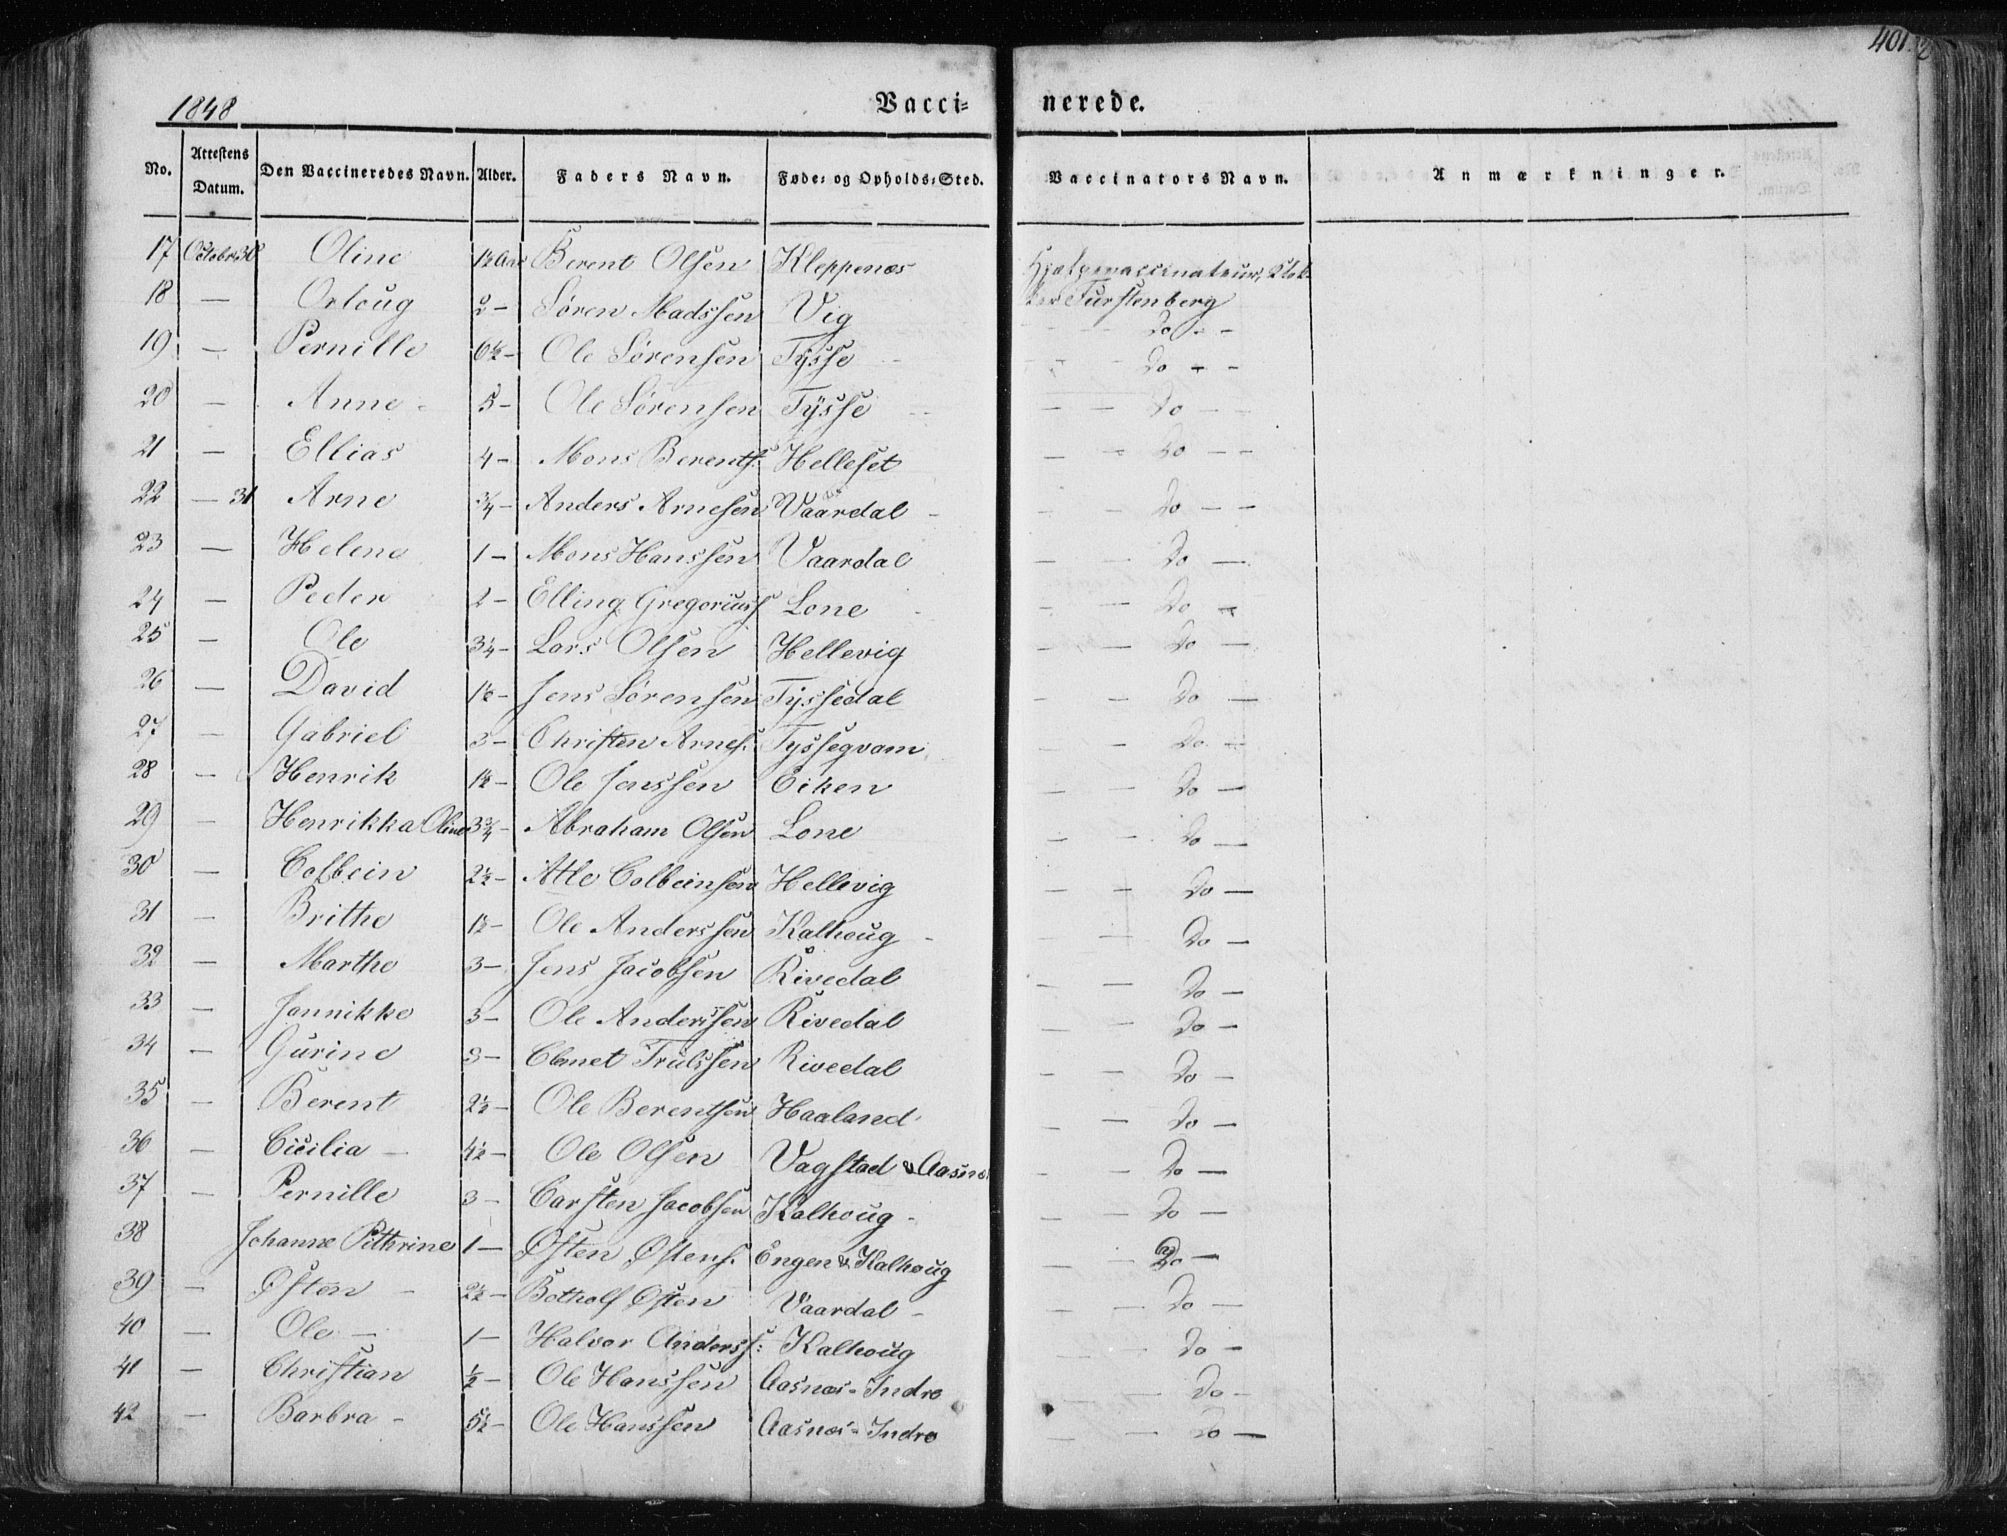 401
1848 Vacci= nerede.
No. Attestens Datum. Den Vaccineredes Navn. Alder. Faders Navn. Føde= og Opholds=Sted. Vaccinators Navn. Anmærkninger.
17 Octobr 30 Oline 1½ Aar Berent Olsen Kleppenæs Hjælpevaccinateur, Klok-
18 — Orloug 2 — Søren Madssen Vig ker Furstenberg
— Do — —
19 — Pernille 6½ — Ole Sørensen Tysse — — Do — —
20 — Anne 5 — Ole Sørensen Tysse — — Do — —
21 — Ellias 4 — Mons Berents: Helleset — — Do — —
22 — 31 Arne ¾ — Anders Arnesen Vaardal — — Do — —
23 — Helene 1 — Mons Hanssen Vaardal — — Do —
24 — Peder 2 — Elling Gregoriuss Lone — — Do —
25 — Ole 3¼ — Lars Olsen Hellevig — — Do —
26 — David 1½ — Jens Sørensen Tyssedal — — Do —
27 — Gabriel 3 — Christen Arnes: Tyssegvam — — Do —
28 — Henrik 1½ — Ole Jenssen Eiken — — Do —
29 — Henrikka Oline 3¾ — Abraham Olsen Lone — — Do —
30 — Colbein 2½ — Atle Colbeinsen Hellevig — — Do —
31 — Brithe 1½ — Ole Anderssen Kalhoug — — Do —
32 — Marthe 3 — Jens Jacobsen Rivedal — — Do —
33 — Jannikke 3 — Ole Anderssen Rivedal — — Do —
34 — Gurine 3 — Clemet Trulssen Rivedal — — Do —
35 — Berent 2½ — Ole Berentsen Haaland — — Do —
36 — Cicilia — 4½ — Ole Olsen Vagstad & Aasnæs — — Do —
37 — Pernille 3 — Carsten Jacobsen Kalhoug — — Do —
38 Johanne Pethrine 1 — Østen Østens. Engen & Kalhoug — — Do —
39 — Østen — 2½ — Botholf Østen Vaardal — — — Do —
40 — Ole — 1 — Halvor Anderss: Kalhoug — — Do —
41 — Christian ½ — Ole Hanssen Aasnæs-Indre — — Do —
42 — Barbra — 5½ — Ole Hanssen Aasnæs-Indre — — Do —